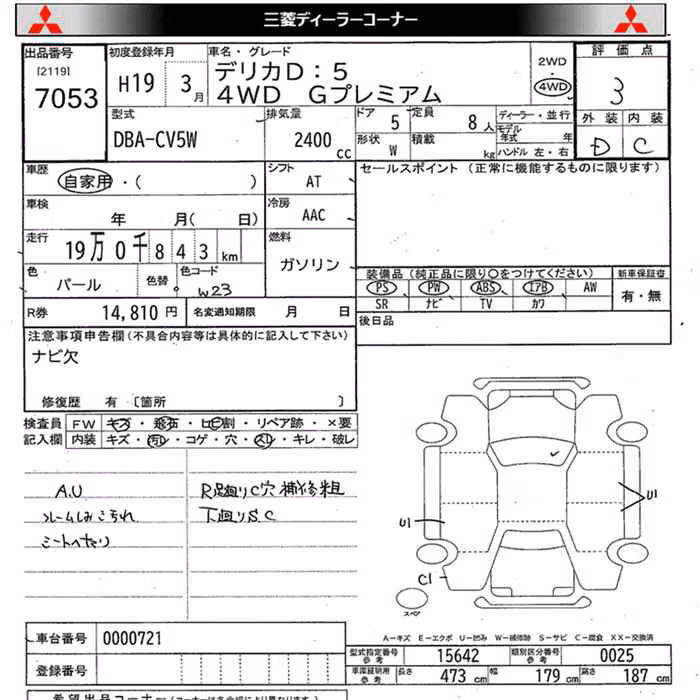 三菱ディーラーコーナー
出品番号 初度登録年月 車名・グレード 評価点
[2119] デリカD:5 2WD
7053 H19 3月 4WD Gプレミアム 4WD 3
型式 排気量 ドア 定員 ディーラー・並行 外装 内装
DBA-CV5W 2400cc 5 8人 モデル年式 年 D C
形状 W 積載 kg ハンドル 左・右
車歴 シフト セールスポイント (正常に機能するものに限ります)
自家用・( ) AT
車検 冷房
年 月( 日) AAC
走行 燃料
19万0千843km ガソリン
色 色替 色コード 装備品(純正品に限り○をつけてください) 新車保証書
パール W23 PS PW ABS エアB AW 有・無
SR ナビ TV カワ
R券 14,810円 名変通知期限 月 日 後日品
注意事項申告欄(不具合内容等は具体的に記入して下さい)
ナビ欠
修復歴 有 〔箇所 〕
検査員 FW キズ・飛石・ヒビ割・リペア跡・×要
記入欄 内装 キズ・汚レ・コゲ・穴・スレ・キレ・破レ
A.U R足廻りC穴補修粗
フレームしみこげれ 下廻りS.C
シートへたり
U1
U1
C1
スペア
A-キズ E-エクボ U-凹み W-補修跡 S-サビ C-腐食 XX-交換済
車台番号 0000721 型式指定番号 参考 15642 類別区分番号 参考 0025
登録番号 車庫証明用 参考 長さ 473cm 幅 179cm 高さ 187cm